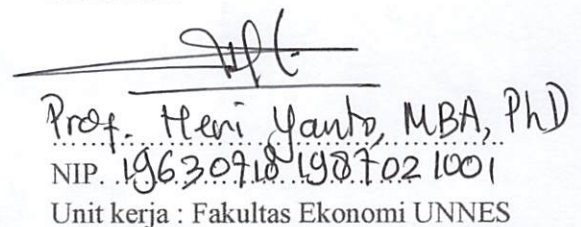 Prof. Heri Yanto, MBA, PhD
NIP. 19630718 198702 1001
Unit kerja : Fakultas Ekonomi UNNES